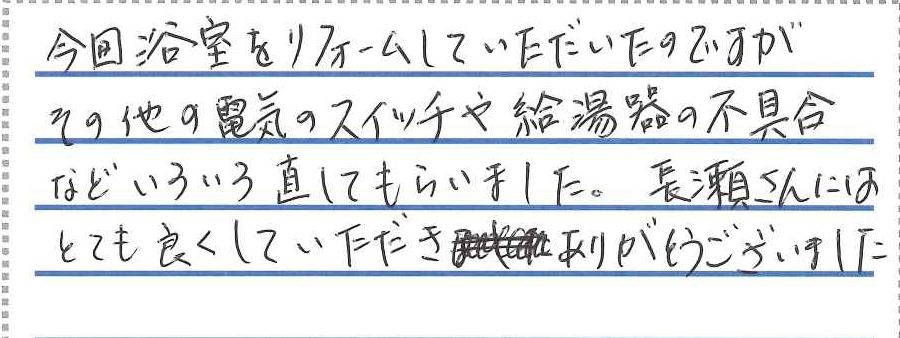 今回浴室をリフォームしていただいたのですが
その他の電気のスイッチや給湯器の不具合
などいろいろ直してもらいました。長瀬さんには
とても良くしていただきありがとうございました